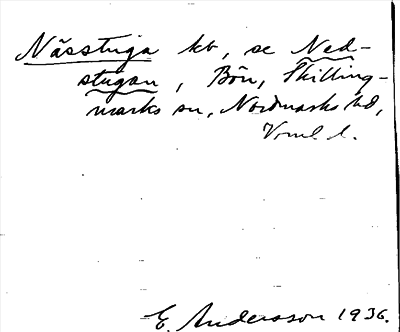 Nässtuga kb, se Ned-
stugan, Bön, Skillings-
marks sn, Nordmarks hd,
Vrml. l.
E. Andersson 1936.